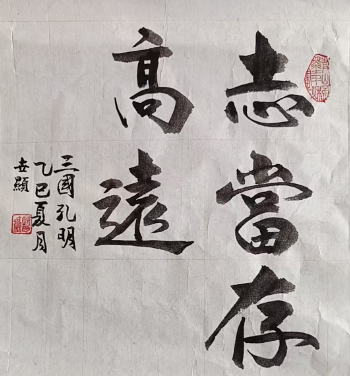 志當存
高遠
三國孔明
乙巳夏月
世顯